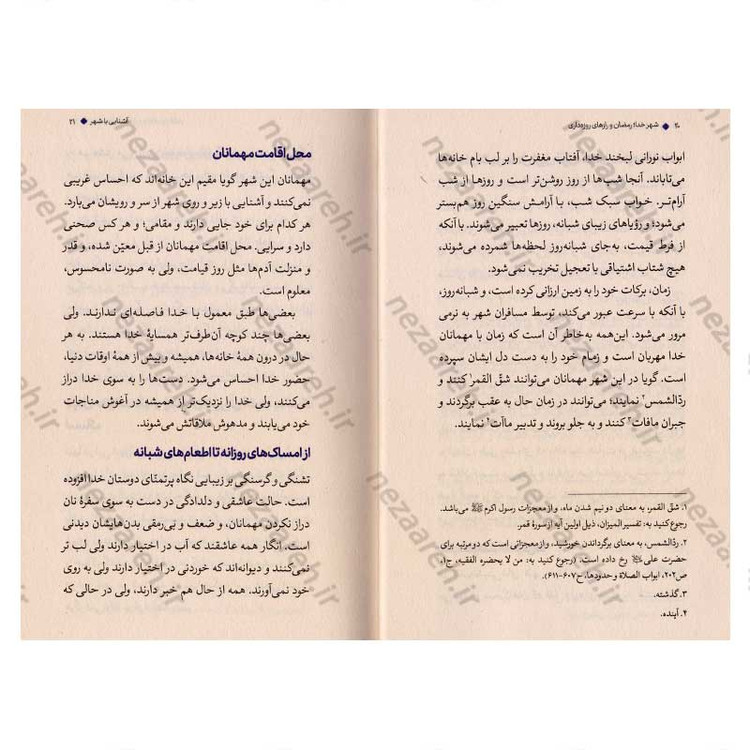 ۲۰ ◆ شهر خدا؛ رمضان و رازهای روزه‌داری
ابواب نورانی لبخند خدا، آفتاب مغفرت را بر لب بام خانه‌ها
می‌تاباند. آنجا شب‌ها از روز روشن‌تر است و روزها از شب
آرام‌تر. خواب سبک شب، با آرامش سنگین روز هم‌بستر
می‌شود؛ و رؤیاهای زیبای شبانه، روزها تعبیر می‌شوند. با آنکه
از فرط قیمت، به‌جای شبانه‌روز لحظه‌ها شمرده می‌شوند،
هیچ شتاب اشتیاقی با تعجیل تخریب نمی‌شود.
زمان، برکات خود را به زمین ارزانی کرده است، و شبانه‌روز،
با آنکه با سرعت عبور می‌کند، توسط مسافران شهر به نرمی
مرور می‌شود. این‌همه به‌خاطر آن است که زمان با مهمانان
خدا مهربان است و زمام خود را به دست دل ایشان سپرده
است. گویا در این شهر مهمانان می‌توانند شقّ القمر۱ کنند و
ردّالشمس۲ نمایند؛ می‌توانند در زمان حال به عقب برگردند و
جبران مافات۳ کنند و به جلو بروند و تدبیر ماآت۴ نمایند.
۱. شقّ القمر، به معنای دو نیم شدن ماه، و از معجزات رسول اکرم ﷺ می‌باشد.
رجوع کنید به: تفسیر المیزان، ذیل اولین آیه از سورهٔ قمر.
۲. ردّالشمس، به معنای برگرداندن خورشید، و از معجزاتی است که دو مرتبه برای
حضرت علی رخ داده است. (رجوع کنید به: من لا یحضره الفقیه، ج۱،
ص۲۰۲، ابواب الصلاة و حدودها، ح۶۰۷-۶۱۱).
۳. گذشته.
۴. آینده.
آشنایی با شهر ◆ ۲۱
محل اقامت مهمانان
مهمانان این شهر گویا مقیم این خانه‌اند که احساس غریبی
نمی‌کنند و آشنایی با زیر و روی شهر از سر و رویشان می‌بارد.
هر کدام برای خود جایی دارند و مقامی؛ و هر کس صحنی
دارد و سرایی. محل اقامت مهمانان از قبل معیّن شده، و قدر
و منزلت آدم‌ها مثل روز قیامت، ولی به صورت نامحسوس،
معلوم است.
بعضی‌ها طبق معمول با خدا فاصله‌ای ندارند. ولی
بعضی‌ها چند کوچه آن‌طرف‌تر همسایهٔ خدا هستند. به هر
حال در درون همهٔ خانه‌ها، همیشه و بیش از همهٔ اوقات دنیا،
حضور خدا احساس می‌شود. دست‌ها را به سوی خدا دراز
می‌کنند، ولی خدا را نزدیک‌تر از همیشه در آغوش مناجات
خود می‌یابند و مدهوش ملاقاتش می‌شوند.
از امساک‌های روزانه تا اطعام‌های شبانه
تشنگی و گرسنگی بر زیبایی نگاه پرتمنّای دوستان خدا افزوده
است. حالت عاشقی و دلدادگی در دست به سوی سفرهٔ نان
دراز نکردن مهمانان، و ضعف و بی‌رمقی بدن‌هایشان دیدنی
است. انگار همه عاشقند که آب در اختیار دارند ولی لب تر
نمی‌کنند و دیوانه‌اند که خوردنی در اختیار دارند ولی به روی
خود نمی‌آورند. همه از حال هم خبر دارند، ولی در حالی که
nezaareh.ir